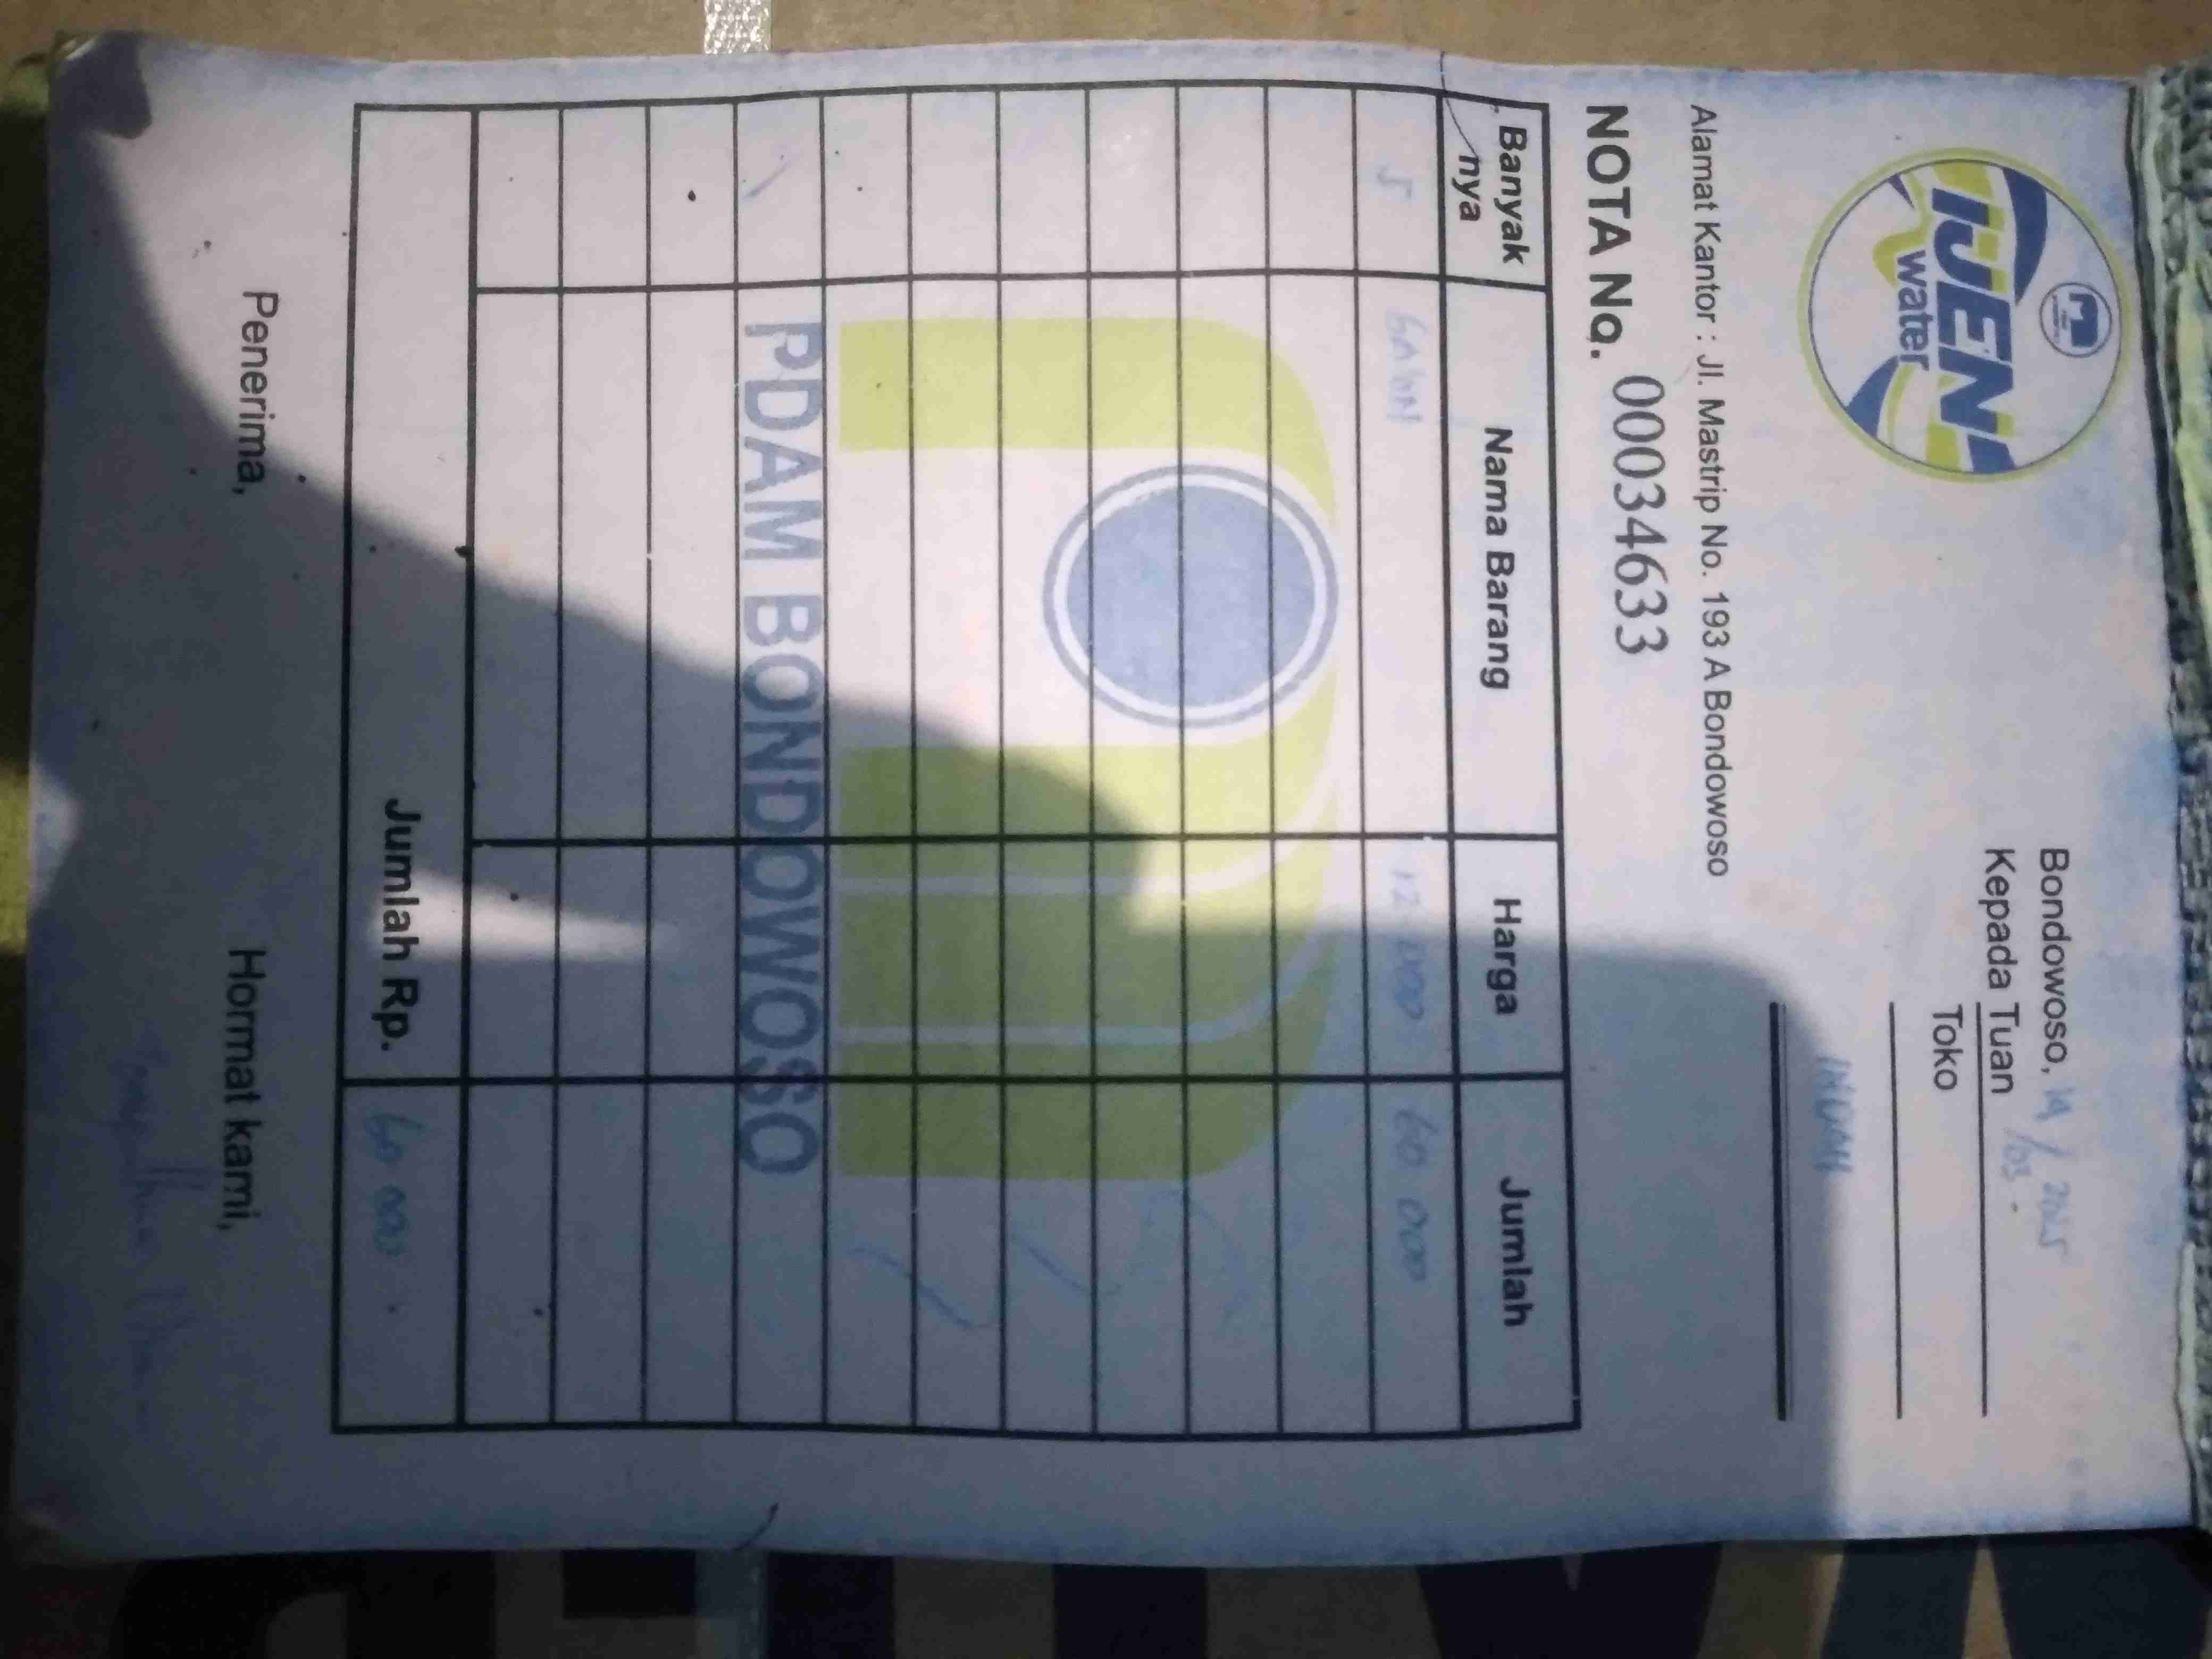 IJEN
water
Bondowoso, 19/03 - 2025
Kepada Tuan
Toko
INDAH
Alamat Kantor : Jl. Mastrip No. 193 A Bondowoso
NOTA No. 00034633
Banyak nya Nama Barang Harga Jumlah
5 GALON 12 000 60 000
PDAM BONDOWOSO
Jumlah Rp. 60 000
Penerima, Hormat kami,